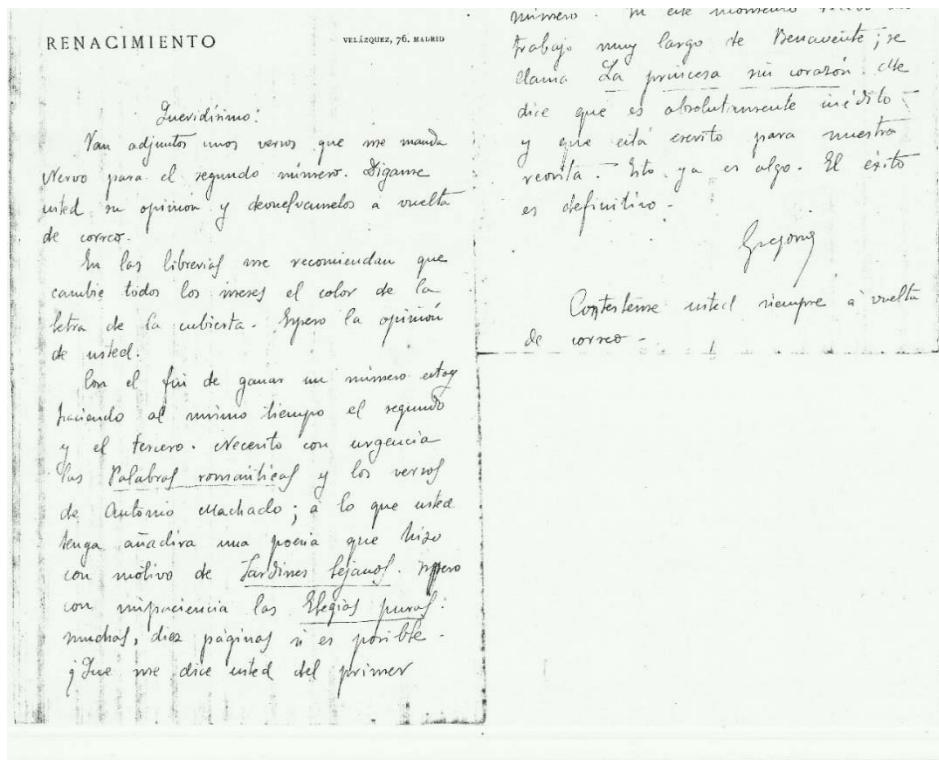 RENACIMIENTO
VELÁZQUEZ, 76. MADRID
Queridísimo:
Van adjuntos unos versos que me manda
Nervo para el segundo número. Digame
usted su opinión y devuelvamelos a vuelta
de correo.
En las librerias me recomiendan que
cambie todos los meses el color de la
letra de la cubierta. Espero la opinión
de usted.
Con el fin de ganar un número estoy
haciendo al mismo tiempo el segundo
y el tercero. Necesito con urgencia
las Palabras románticas y los versos
de Antonio Machado; a lo que usted
tenga añadira una poesia que hizo
con motivo de Jardines lejanos. Espero
con impaciencia las Elegias puras:
muchas, diez páginas si es posible.
¿Que me dice usted del primer
número. En este momento
trabajo muy largo de Benavente; se
llama La princesa sin corazón. Me
dice que es absolutamente inédito
y que está escrito para nuestra
revista. Esto ya es algo. El éxito
es definitivo.
Gregorio
Contésteme usted siempre á vuelta
de correo.